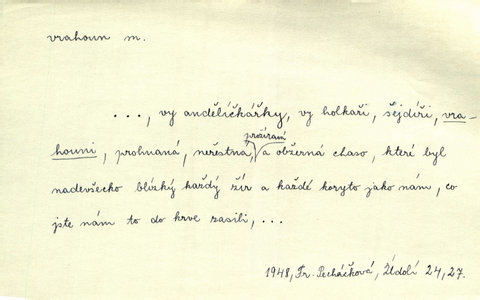 vrahoun m.
..., vy andělíčkářky, vy holkaři, šejdíři, vra-
houni, prohnaná, neřestná, prožraná a obžerná chaso, které byl
nadevšecko blízký každý žír a každé koryto jako nám, co
jste nám to do krve zasili, ...
1948, Fr. Pecháčková, Údolí 24, 27.